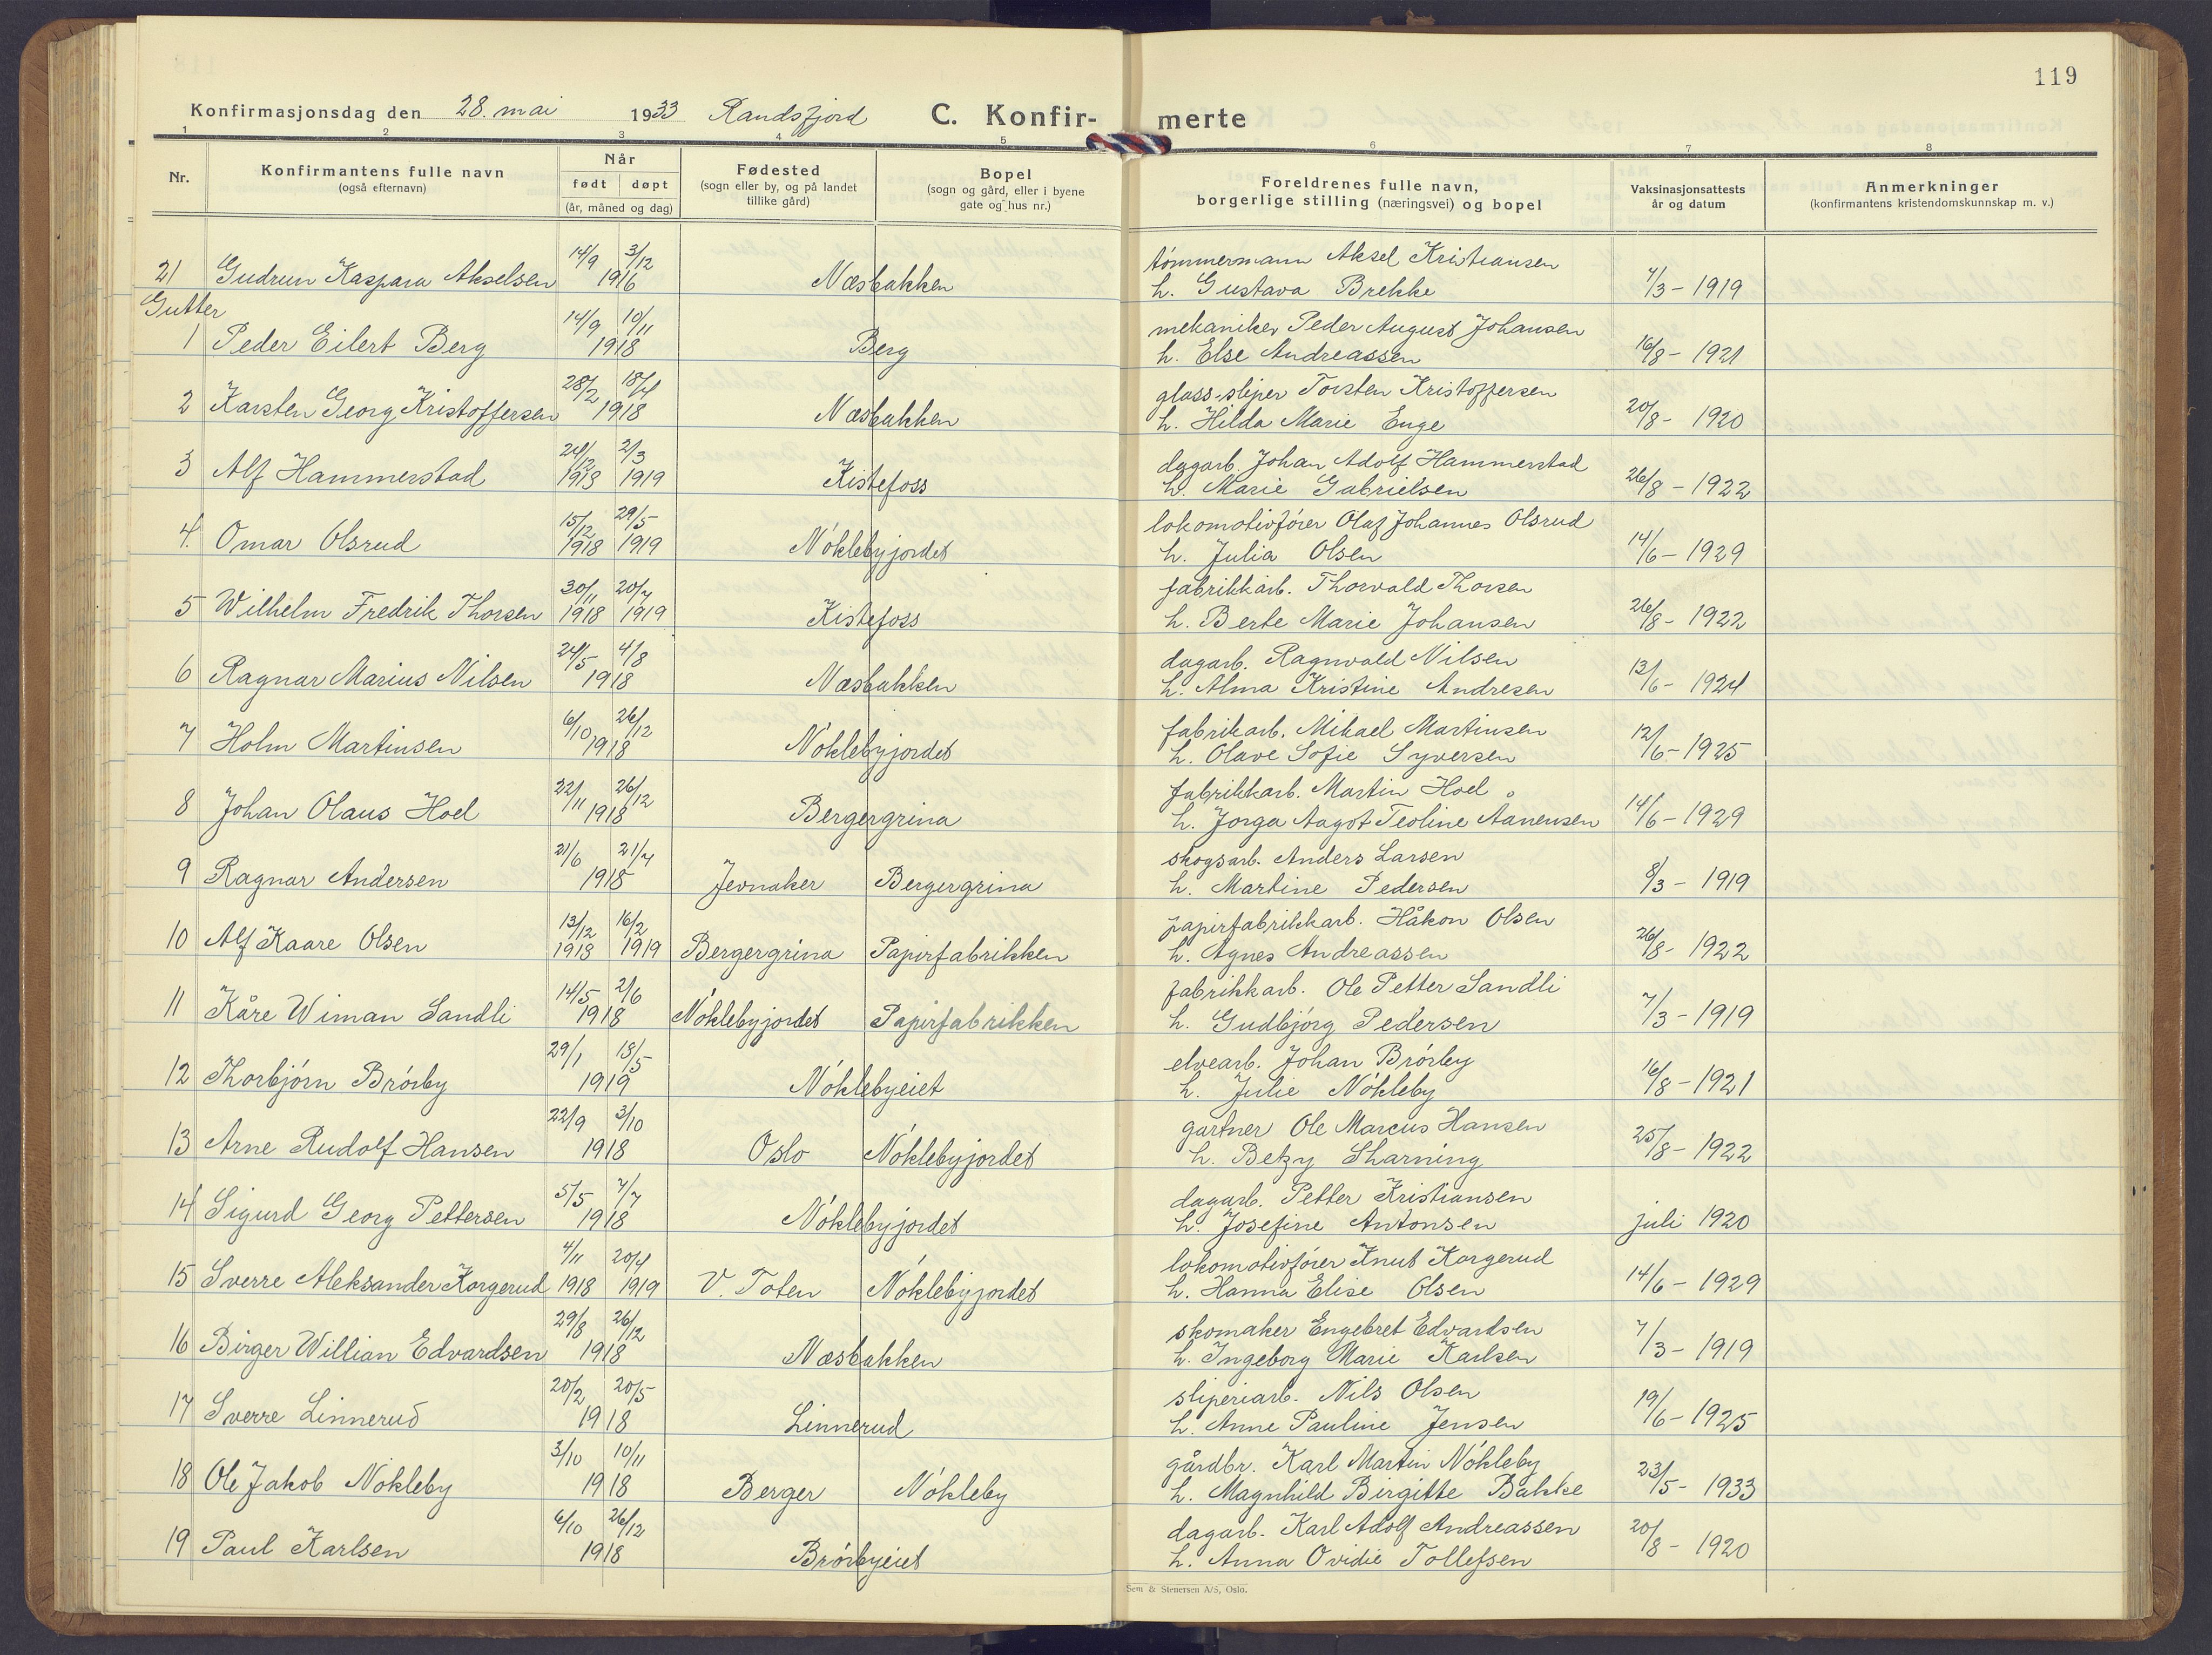 119
Konfirmasjonsdag den 28. mai 1933 Randsfjord C. Konfir- merte
1 2 3 4 5 6 7 8
Nr. Konfirmantens fulle navn (også efternavn) Når født døpt (år, måned og dag) Fødested (sogn eller by, og på landet tillike gård) Bopel (sogn og gård, eller i byene gate og hus nr.) Foreldrenes fulle navn, borgerlige stilling (næringsvei) og bopel Vaksinasjonsattests år og datum Anmerkninger (konfirmantens kristendomskunnskap m. v.)
14/9 3/12 tømmermann Aksel Kristiansen
21 Gudrun Kaspara Akselsen 1916 Næsbakken h. Gustava Brekke 7/3 - 1919
Gutter
14/9 10/11 mekaniker Peder August Johansen
1 Peder Eilert Berg 1918 Berg h. Else Andreassen 16/8 - 1921
28/2 18/4 glass-sliper Torsten Kristoffersen
2 Karsten Georg Kristoffersen 1918 Næsbakken h. Hilda Marie Enge 20/8 - 1920
24/12 2/3 dagarb. Johan Adolf Hammerstad
3 Alf Hammerstad 1918 1919 Kistefoss h. Marie Gabrielsen 26/8 - 1922
15/12 29/5 lokomotivfører Olaf Johannes Olsrud
4. Omar Olsrud 1918 1919 Nøklebyjordet h. Julia Olsen 14/6 - 1929
30/11 20/7 fabrikkarb. Thorvald Thorsen
5 Wilhelm Fredrik Thorsen 1918 1919 Kistefoss h. Berte Marie Johansen 26/8 - 1922
24/5 4/8 dagarb. Ragnvald Nilsen
6 Ragnar Marius Nilsen 1918 Næsbakken h. Alma Kristine Andresen 13/6 - 1924
6/10 26/12 fabrikarb. Mikael Martinsen
7 Holm Martinsen 1918 Nøklebyjordet h. Olave Sofie Syversen 12/6 - 1925
22/11 26/12 fabrikkarb. Martin Hoel
8 Johan Olaus Hoel 1918 Bergergrina h. Jorga Aagot Teoline Aanensen 14/6 - 1929
21/6 21/7 skogsarb. Anders Larsen
9 Ragnar Andersen 1918 Jevnaker Bergergrina h. Martine Pedersen 8/3 - 1919
13/12 16/2 papirfabrikkarb. Håkon Olsen
10 Alf Kaare Olsen 1918 1919 Bergergrina Papirfabrikken h. Agnes Andreassen 26/8 - 1922
14/5 2/6 fabrikkarb. Ole Petter Sandli
11 Kåre Wiman Sandli 1918 Nøklebyjordet Papirfabrikken h. Gudbjørg Pedersen 7/3 - 1919
29/1 18/5 elvearb. Johan Brørby
12 Thorbjørn Brørby 1919 Nøklebyeiet h. Julie Nøkleby 16/8 - 1921
22/9 3/10 gartner Ole Marcus Hansen
13 Arne Rudolf Hansen 1918 Oslo Nøklebyjordet h. Betzy Skarning 25/8 - 1922
5/5 7/7 dagarb. Petter Kristiansen
14 Sigurd Georg Pettersen 1918 Nøklebyjordet h. Josefine Antonsen juli 1920
4/11 20/4 lokomotivfører Knut Korgerud
15 Sverre Aleksander Korgerud 1918 1919 V. Toten Nøklebyjordet h. Hanna Elise Olsen 14/6 - 1929
29/8 26/12 skomaker Engebret Edvardsen
16 Birger Willian Edvardsen 1918 Næsbakken h. Ingeborg Marie Karlsen 7/3 - 1919
20/2 20/5 sliperiarb. Nils Olsen
17 Sverre Linnerud 1918 Linnerud h. Anne Pauline Jensen 19/6 - 1925
3/10 10/11 gårdbr. Karl Martin Nøkleby
18 Ole Jakob Nøkleby 1918 Berger Nøkleby h. Magnhild Birgitte Bakke 23/5 - 1933
6/10 26/12 dagarb. Karl Adolf Andreassen
19 Paul Karlsen 1918 Brørbyeiet h. Anna Ovidie Tollefsen 20/8 - 1920
Sem & Stenersen A/S, Oslo.